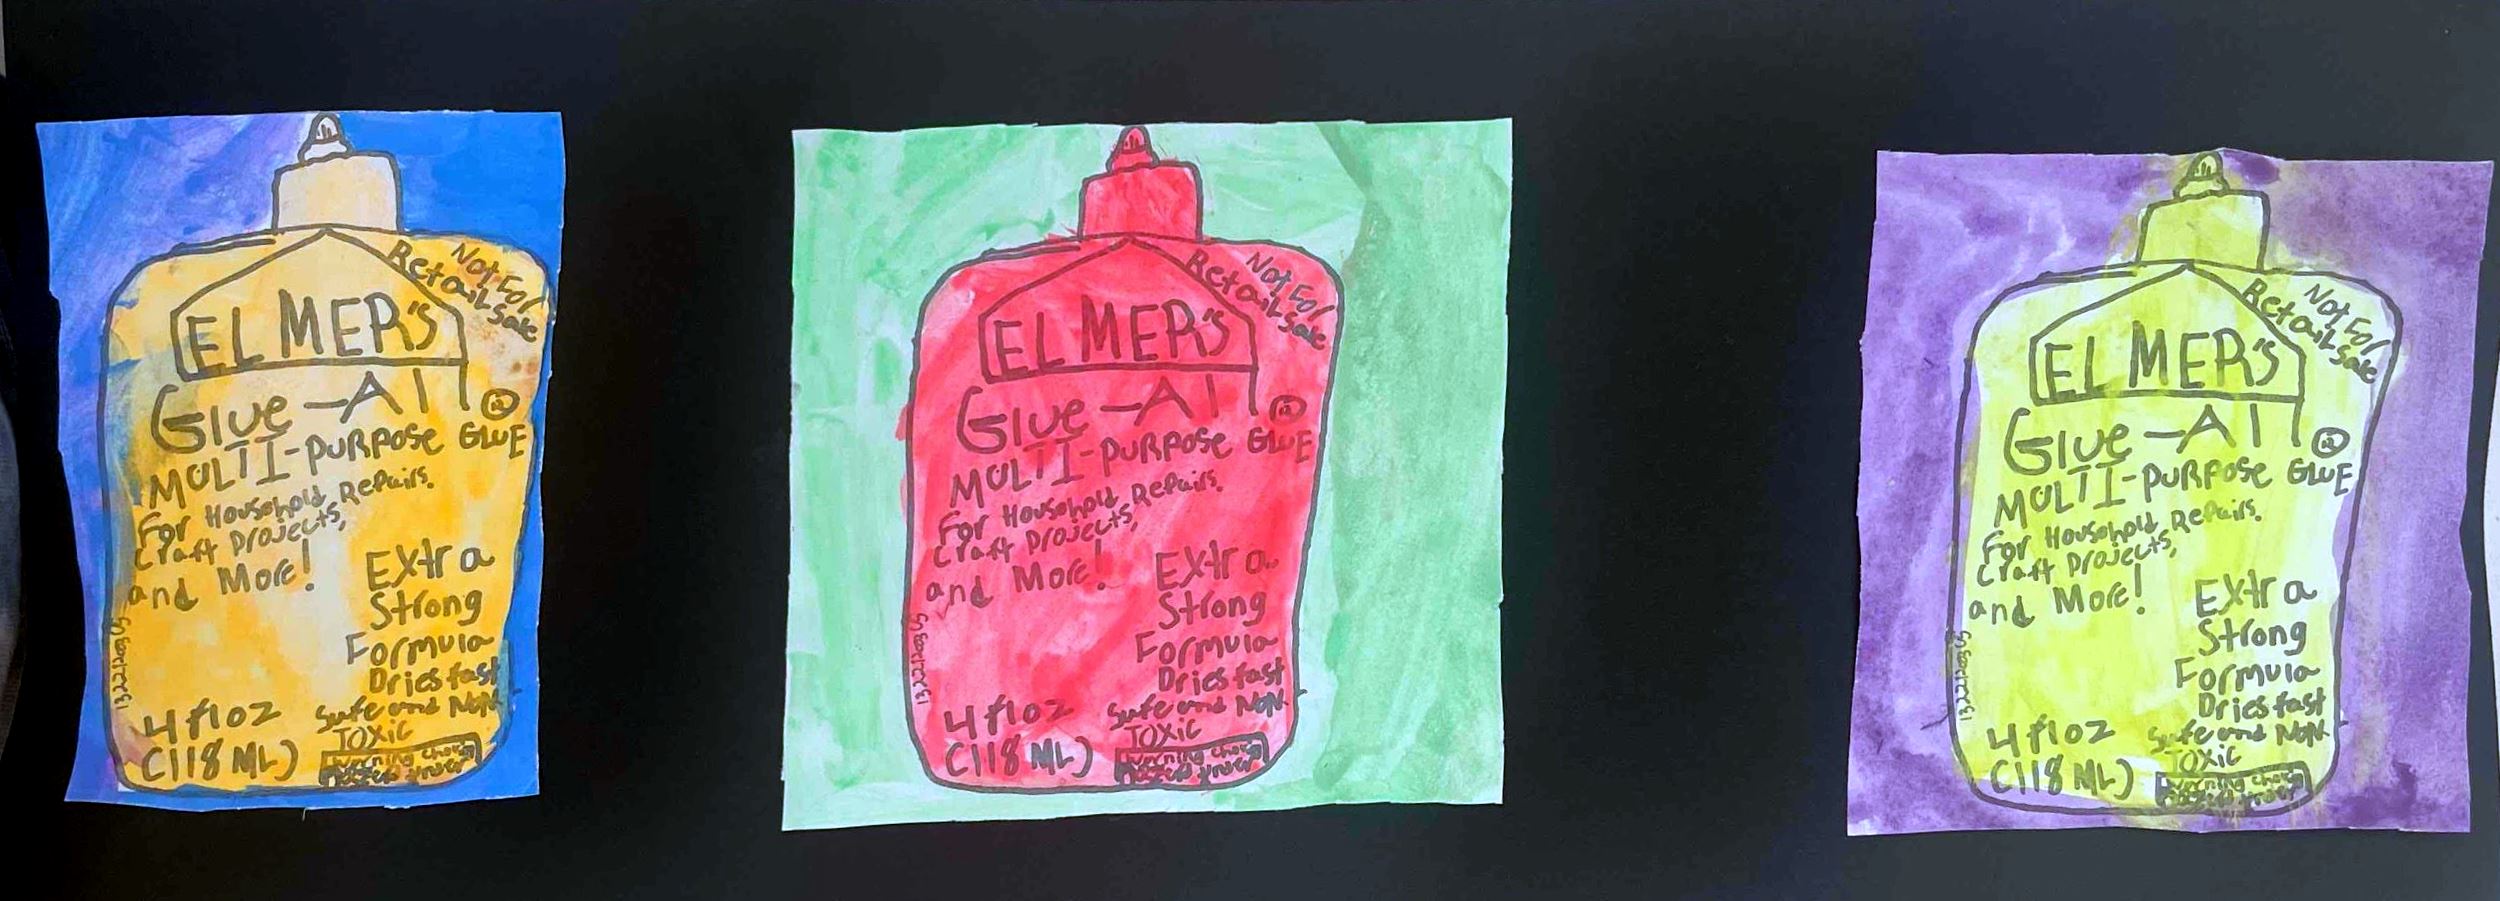 Not For
Retail Sale
ELMER's
Glue-All
MULTI-PURPOSE GLUE
For Household Repairs.
Craft Projects,
and More!
Extra
Strong
Formula
Dries fast
Safe and Non
TOXIC
4 fl oz
(118 ML)
Not For
Retail Sale
ELMER's
Glue-All
MULTI-PURPOSE GLUE
For Household Repairs.
Craft Projects,
and More!
Extra
Strong
Formula
Dries fast
Safe and Non
TOXIC
4 fl oz
(118 ML)
Not For
Retail Sale
ELMER's
Glue-All
MULTI-PURPOSE GLUE
For Household Repairs.
Craft Projects,
and More!
Extra
Strong
Formula
Dries fast
Safe and Non
TOXIC
4 fl oz
(118 ML)